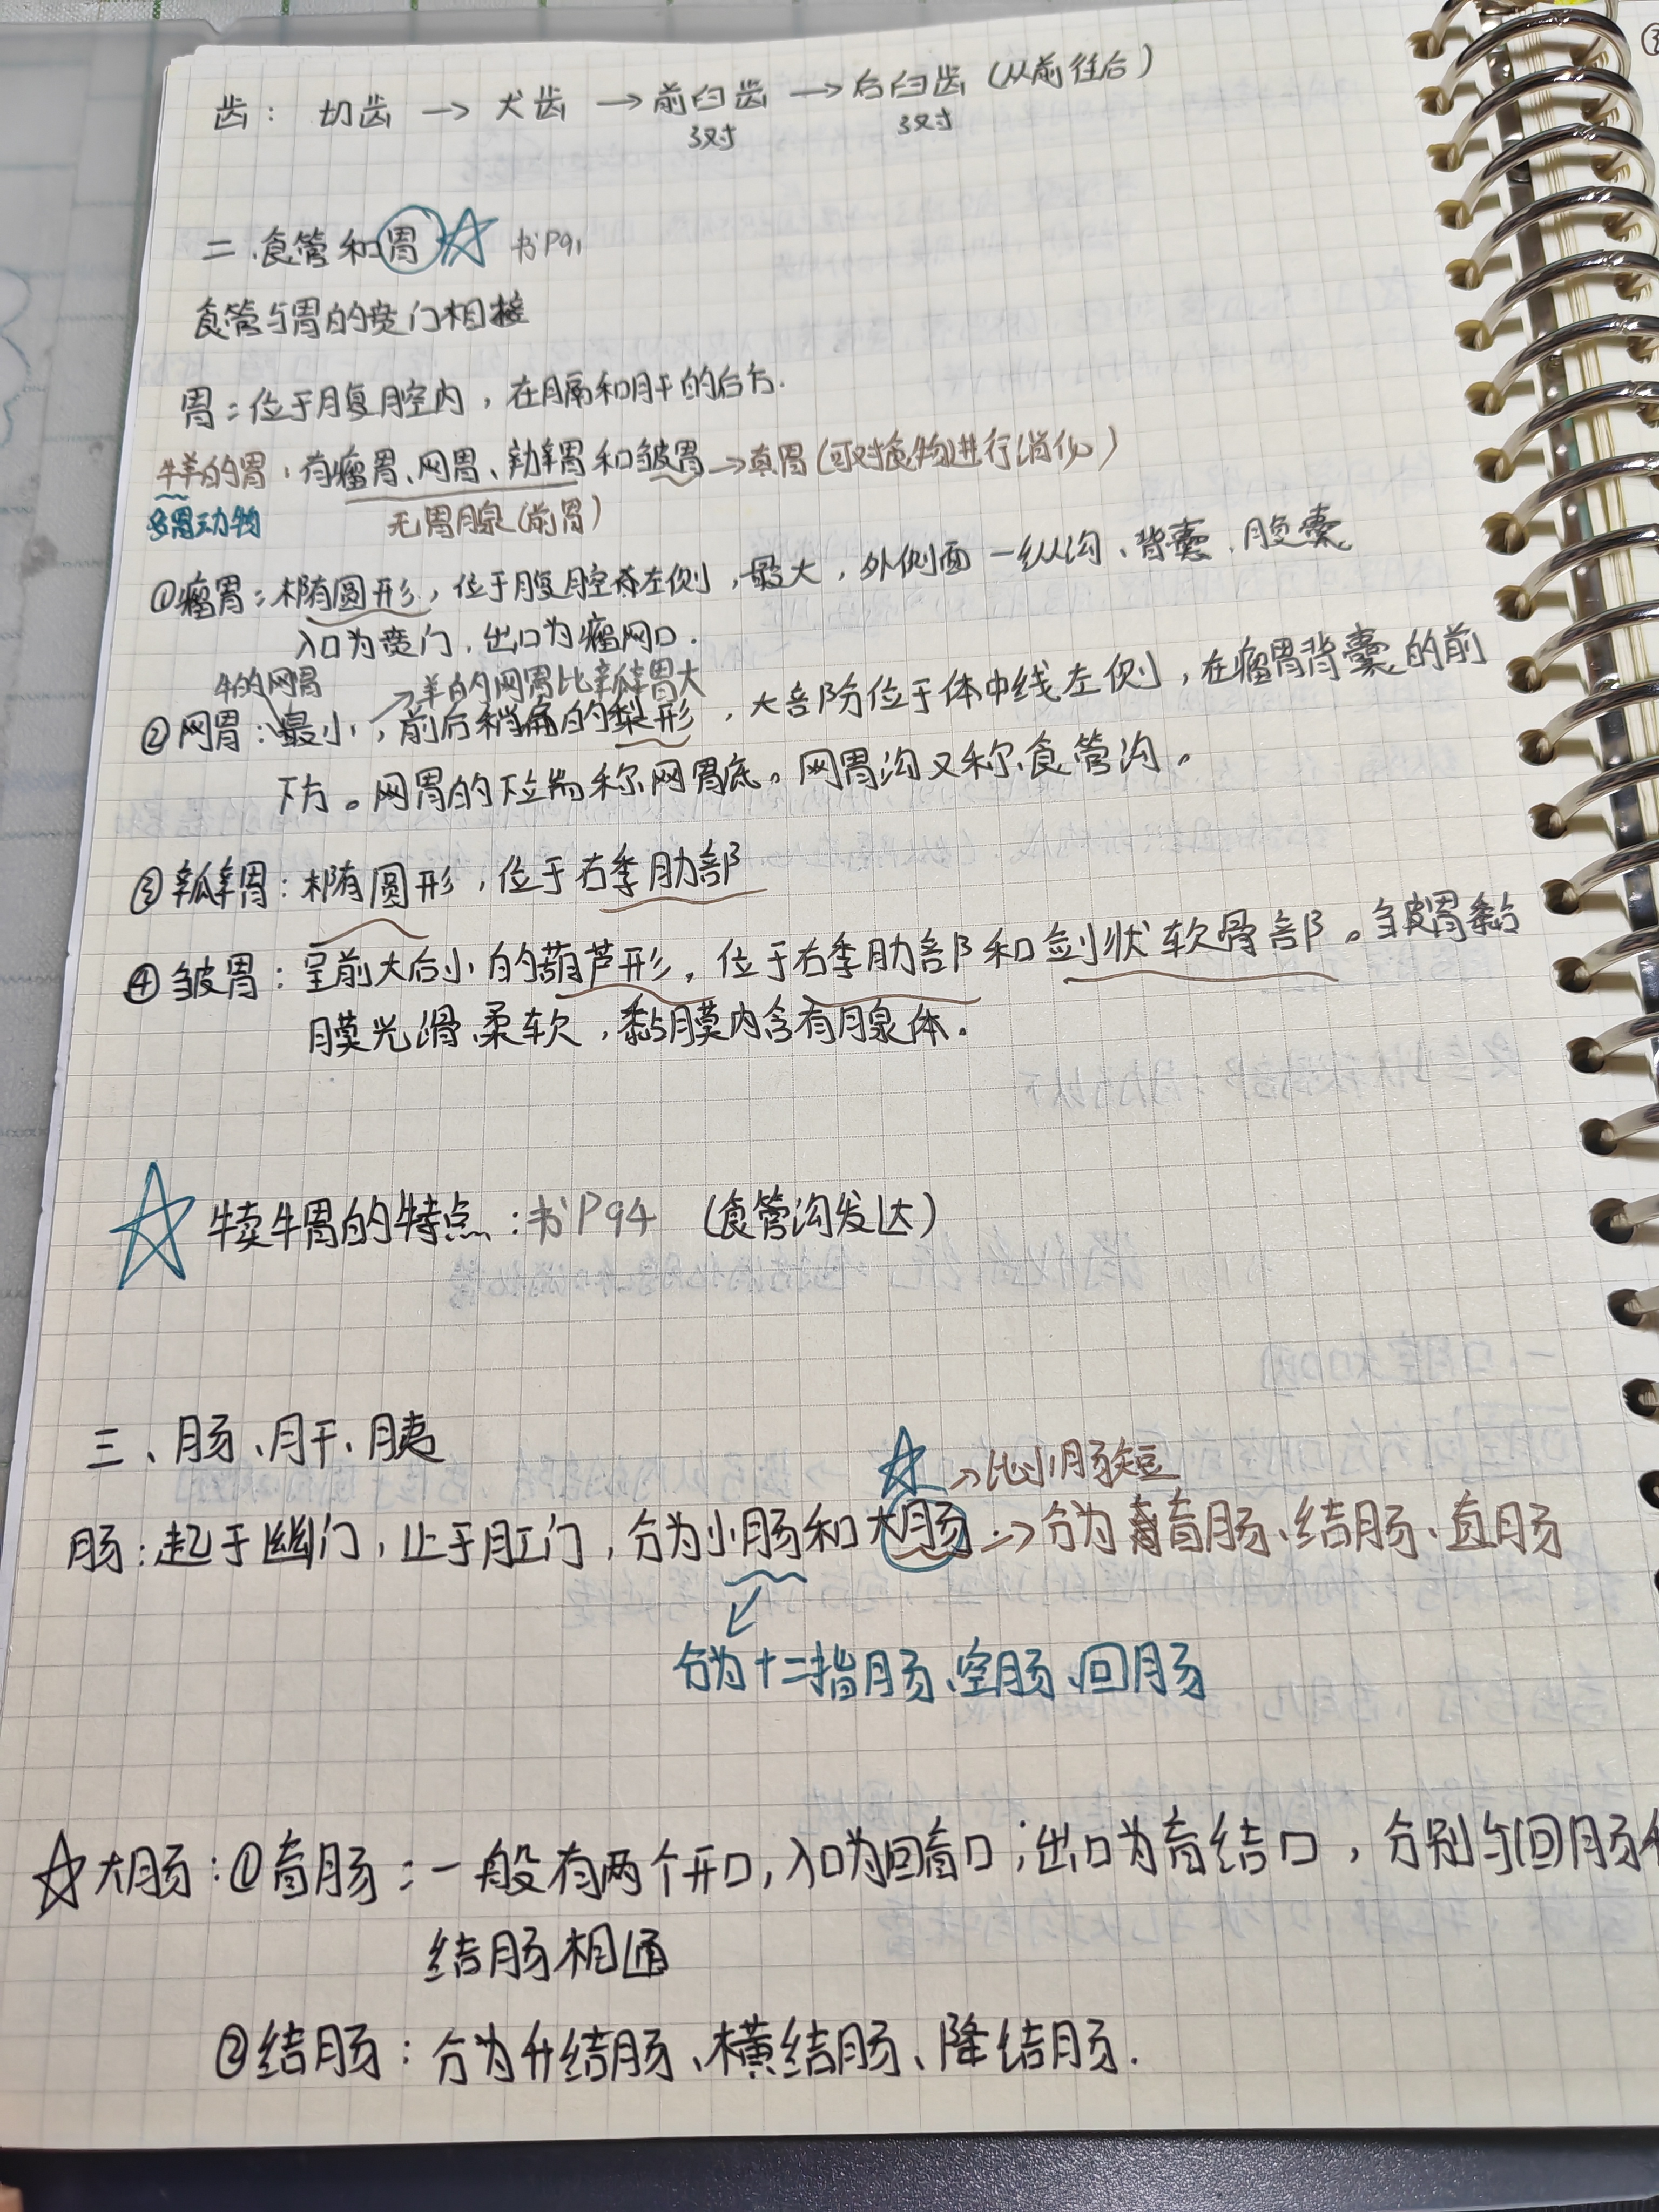 齿：切齿 → 犬齿 → 前臼齿 → 后臼齿（从前往后）
3对 3对
二、食管和胃 书P91
食管与胃的贲门相接
胃：位于腹腔内，在膈和肝的后方.
牛羊的胃：有瘤胃、网胃、瓣胃和皱胃→真胃(可对食物进行消化)
多胃动物 无胃腺(前胃)
①瘤胃：椭圆形，位于腹腔左侧，最大，外侧面一纵沟、背囊、腹囊
入口为贲门，出口为瘤网口.
牛的网胃 →羊的网胃比瓣胃大
②网胃：最小，前后稍扁的梨形，大部分位于体中线左侧，在瘤胃背囊的前
下方。网胃的下端称网胃底。网胃沟又称食管沟。
③瓣胃：椭圆形，位于右季肋部
④皱胃：呈前大后小的葫芦形，位于右季肋部和剑状软骨部。皱胃黏
膜光滑、柔软，黏膜内含有腺体.
犊牛胃的特点：书P94 (食管沟发达)
三、肠、肝、胰
→比小肠短
肠：起于幽门，止于肛门，分为小肠和大肠→分为盲肠、结肠、直肠
分为十二指肠、空肠、回肠
大肠：①盲肠：一般有两个开口，入口为回盲口；出口为盲结口，分别与回肠
结肠相通
②结肠：分为升结肠、横结肠、降结肠.